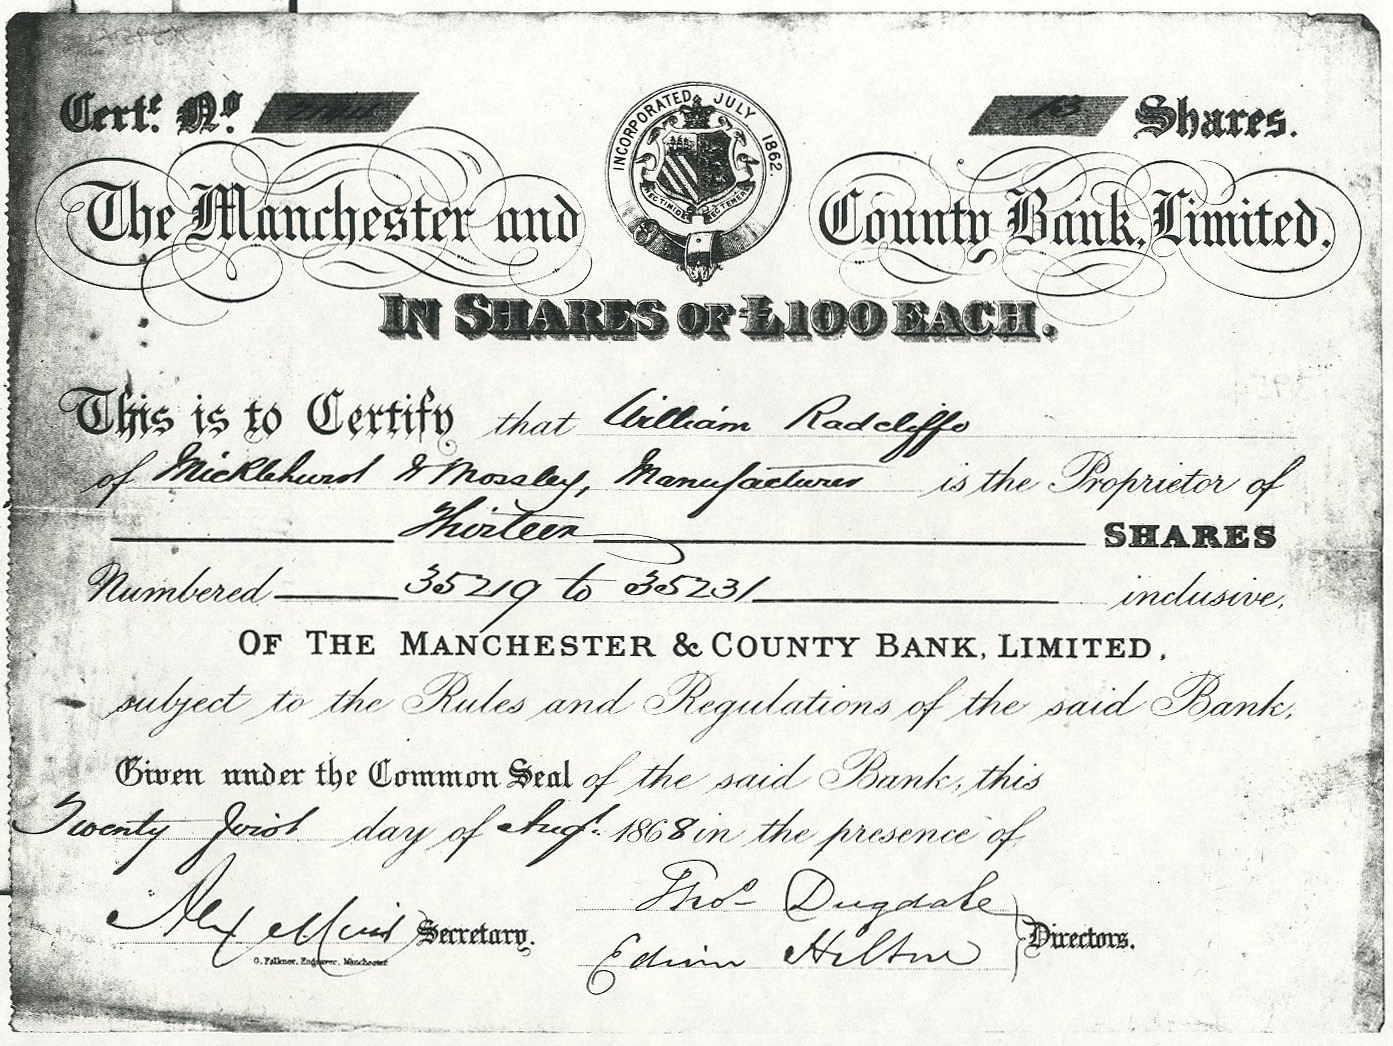 Certe. No.
13 Shares.
INCORPORATED JULY 1862.
NEC TIMIDE NEC TEMERE
The Manchester and County Bank, Limited.
IN SHARES OF £100 EACH.
This is to Certify that William Radcliffe
of Micklehurst Nr Mossley, Manufacturer is the Proprietor of
Thirteen SHARES
Numbered 35219 to 35231 inclusive,
OF THE MANCHESTER & COUNTY BANK, LIMITED,
subject to the Rules and Regulations of the said Bank.
Given under the Common Seal of the said Bank, this
Twenty first day of Augt. 1868 in the presence of
Thos Dugdale
Alex Secretary.
Edwin Hilton
Directors.
G. Falkner, Engraver, Manchester